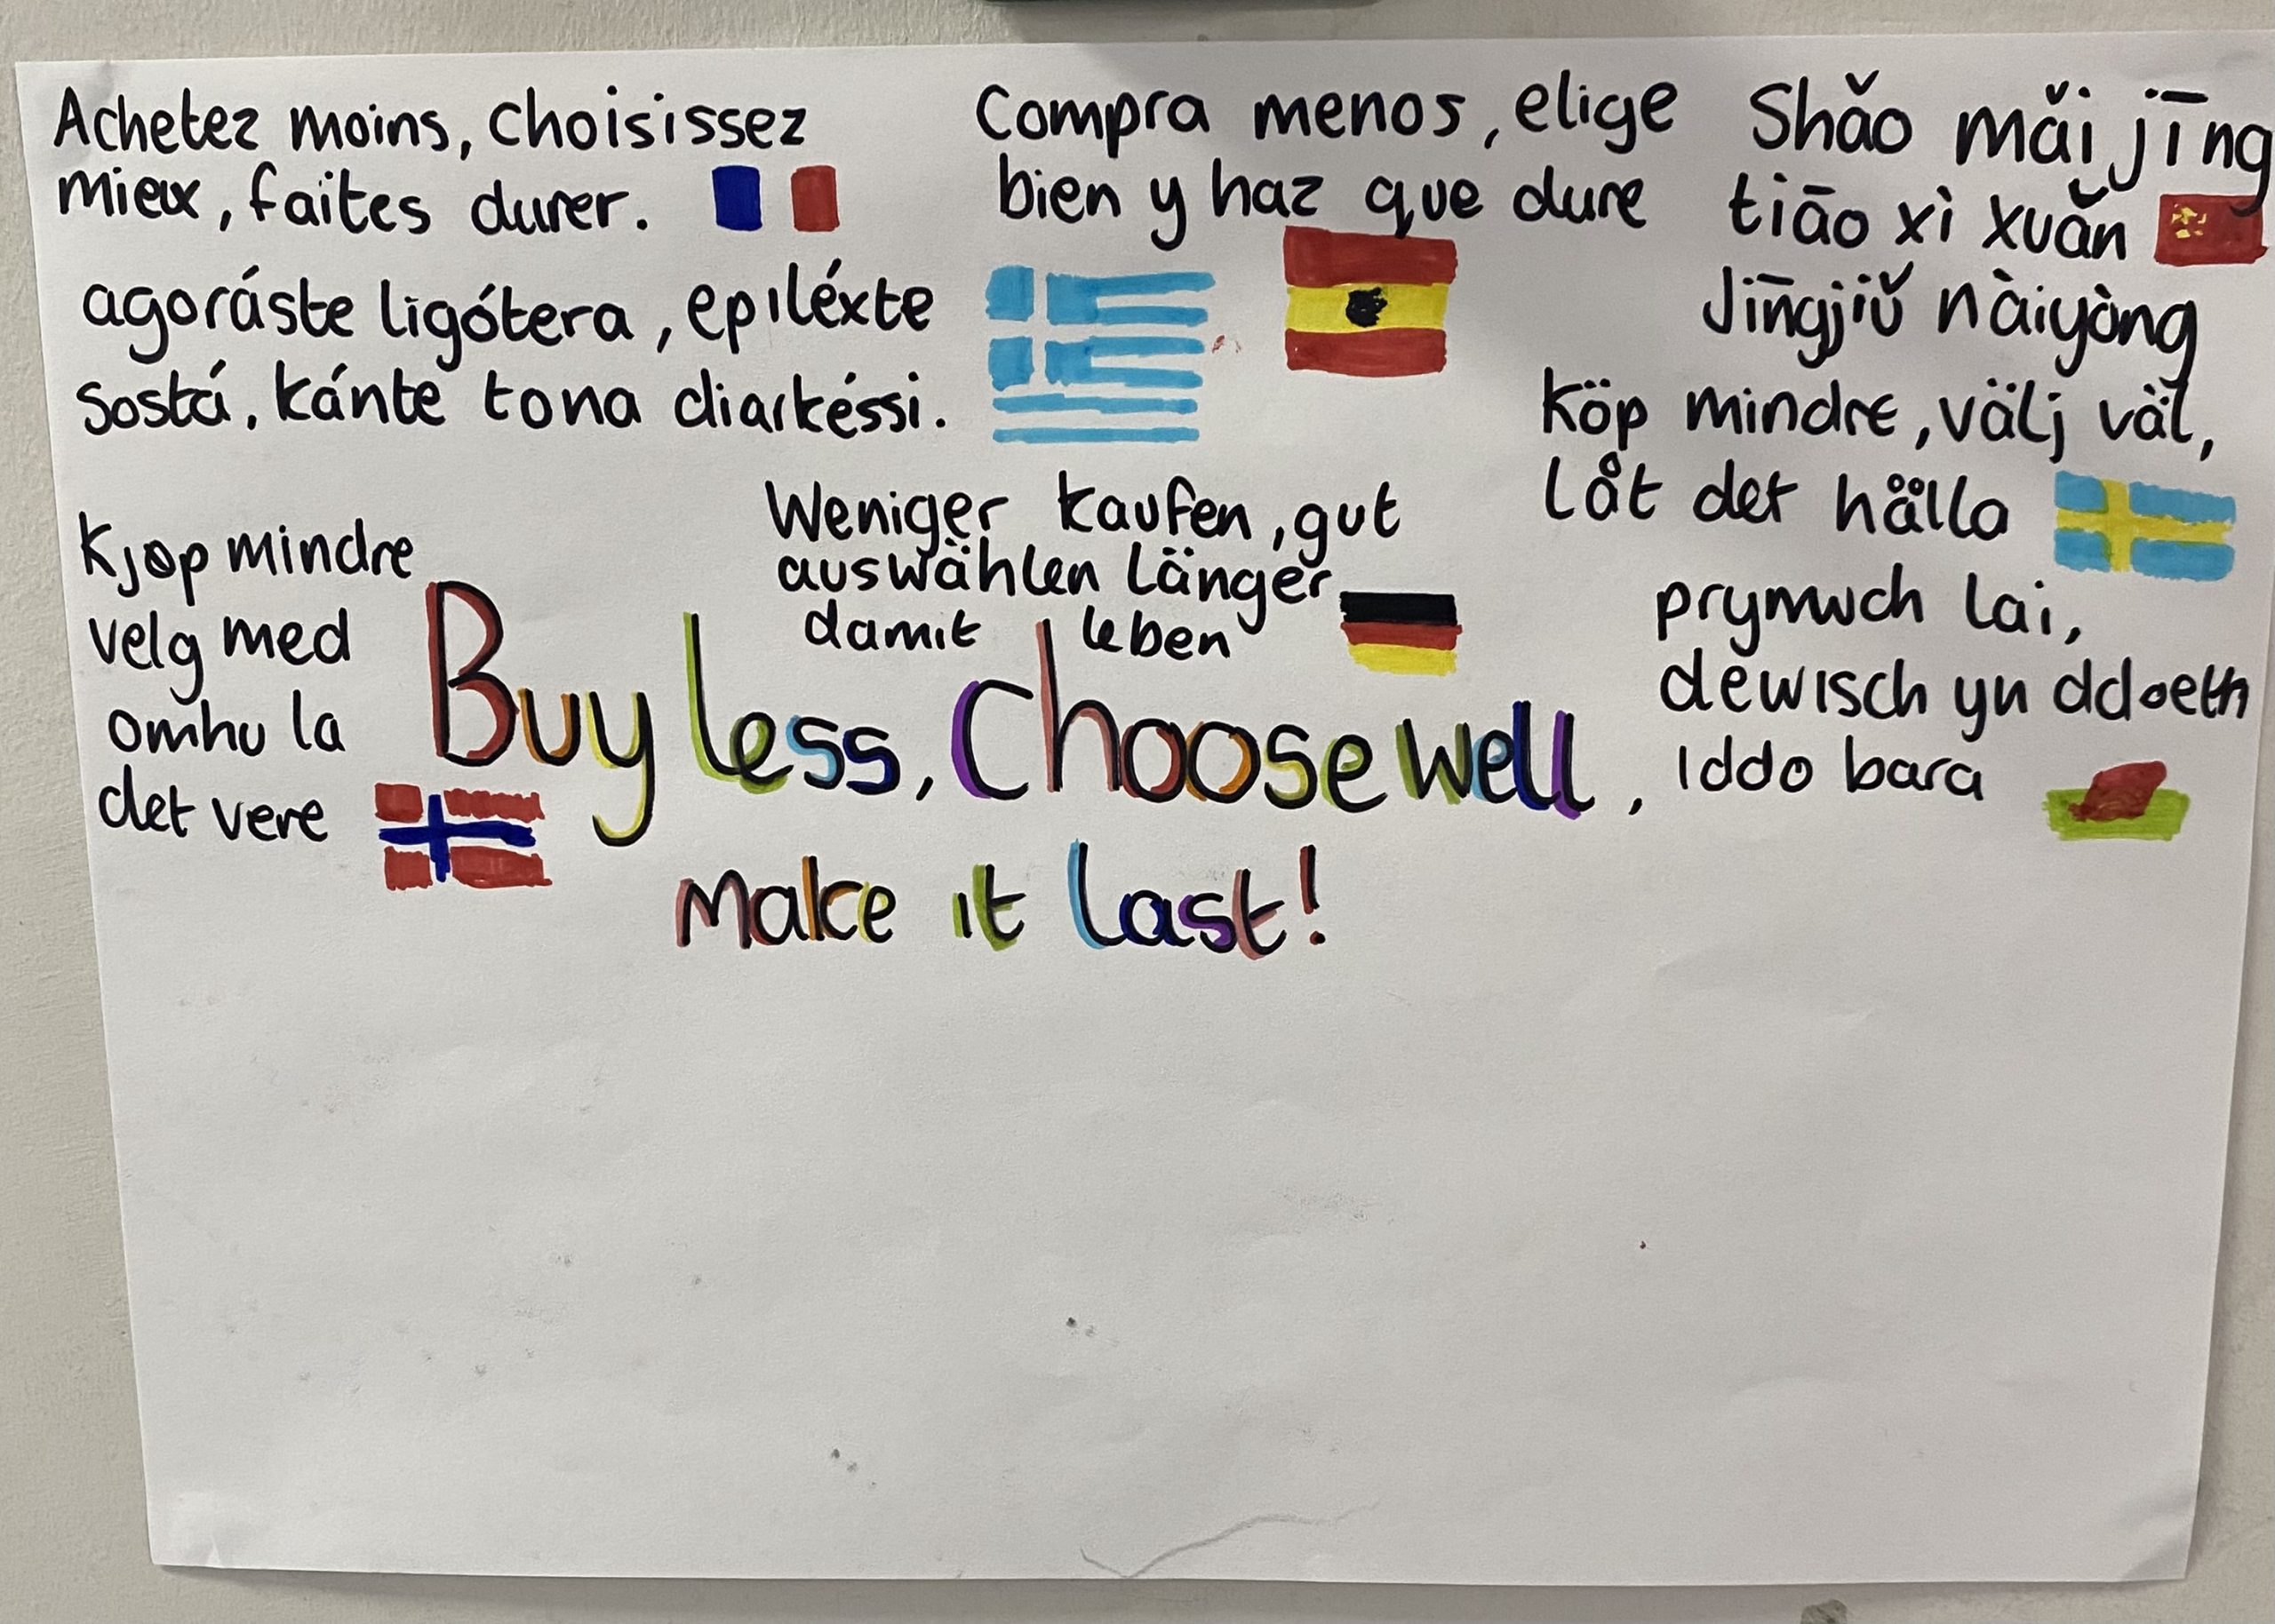 Achetez moins, choisissez
mieux, faites durer.
Compra menos, elige
bien y haz que dure
Shǎo mǎi jīng
tiāo xì xuǎn
Jīngjiǔ nàiyòng
agoráste ligótera, epiléxte
sostá, kánte tona diarkéssi.
Köp mindre, välj väl,
låt det hålla
Weniger kaufen, gut
auswählen länger
damit leben
Kjøp mindre
velg med
omhu la
det vere
prynwch lai,
dewisch yn ddoeth
iddo bara
Buy less, Choose well,
make it last!